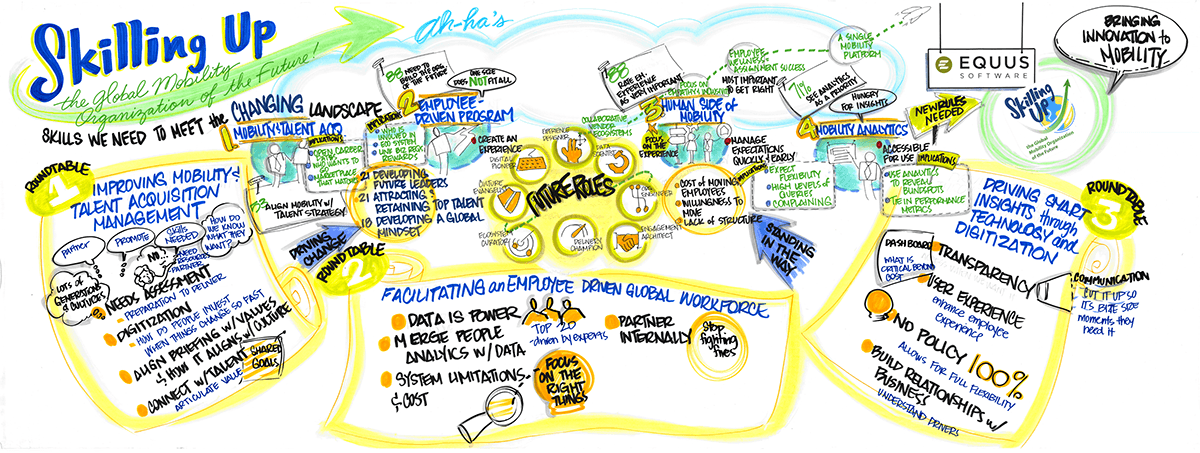 Skilling Up
the Global Mobility
Organization of the Future!
SKILLS WE NEED TO MEET the CHANGING LANDSCAPE
ah-ha's
1 MOBILITY & TALENT ACQ
IMPLICATIONS
OPEN CAREER PATHS
WHO WANTS TO
MARKETPLACE THAT
83 ALIGN MOBILITY W/ TALENT STRATEGY
88 NEED TO BUILD THE ORG OF THE FUTURE
ONE SIZE
DOES NOT FIT ALL
2 EMPLOYEE-
DRIVEN PROGRAM
IMPLICATIONS
WHO IS
INVOLVED IN
ECO SYSTEM
REWARDS
CREATE AN
EXPERIENCE
21 DEVELOPING
FUTURE LEADERS
21 ATTRACTING &
RETAINING TOP TALENT
18 DEVELOPING A GLOBAL
MINDSET
DRIVING
CHANGE
FUTURE ROLES
EXPERIENCE DESIGNER
DATA SCIENTIST
DIGITAL PIONEER
CULTURE EVANGELIST
ECOSYSTEM CURATOR
DELIVERY CHAMPION
ENGAGEMENT ARCHITECT
ENGINEER
COLLABORATIVE
VENDOR
ECOSYSTEMS
88 RATE EM. EXPERIENCE AS VERY IMPORTANT
EMPLOYEE
WELLNESS =
ASSIGNMENT SUCCESS
A SINGLE
MOBILITY
PLATFORM
FOCUS ON
EMPATHY & INCLUSIVITY
MOST IMPORTANT
TO GET RIGHT
3 HUMAN SIDE OF
MOBILITY
FOCUS
ON THE
EXPERIENCE
MANAGE
EXPECTATIONS
QUICKLY & EARLY
COST OF MOVING
EMPLOYEES
WILLINGNESS TO
MOVE
LACK OF STRUCTURE
STANDING
IN THE
WAY
IMPLICATIONS
EXPECT
FLEXIBILITY
HIGH LEVELS OF
QUERIES
COMPLAINING
71% SEE ANALYTICS AS A PRIORITY
HUNGRY
FOR INSIGHTS
4 MOBILITY ANALYTICS
ACCESSIBLE
FOR USE
IMPLICATIONS
USE ANALYTICS
TO REVEAL
BLINDSPOTS
TIE IN PERFORMANCE
METRICS
NEW RULES
NEEDED
EQUUS
SOFTWARE
BRINGING
INNOVATION to
MOBILITY
Skilling
Up
The Global
Mobility Organization
of the Future
ROUNDTABLE
1
IMPROVING MOBILITY &
TALENT ACQUISITION
MANAGEMENT
PARTNER
PROMOTE
SKILLS
NEEDED
HOW DO
WE KNOW
WHAT THEY
WANT?
NO
NEED RESOURCES
PARTNER
LOTS OF
GENERATIONS
& CULTURES
NEEDS ASSESSMENT
PREPARATION TO DELIVER
DIGITIZATION
HOW DO PEOPLE DIGEST
WHEN THINGS CHANGE SO FAST
ALIGN BRIEFING W/ VALUES
& HOW IT ALIGNS W/ CULTURE
CONNECT W/ TALENT
ARTICULATE VALUE
SHARED
GOALS
ROUNDTABLE
2
FACILITATING an EMPLOYEE DRIVEN GLOBAL WORKFORCE
DATA IS POWER
MERGE PEOPLE
ANALYTICS W/ DATA
SYSTEM LIMITATIONS
& COST
TOP 20
driven by experts
FOCUS
ON THE
RIGHT
THINGS
PARTNER
INTERNALLY
Stop
fighting
fires
ROUNDTABLE
3
DRIVING SMART
INSIGHTS through
TECHNOLOGY and
DIGITIZATION
DASHBOARD
WHAT IS
CRITICAL BEYOND
COST
TRANSPARENCY
USER EXPERIENCE
enhance employee
experience
NO POLICY 100%
ALLOWS FOR FULL FLEXIBILITY
BUILD RELATIONSHIPS W/
BUSINESS
UNDERSTAND DRIVERS
COMMUNICATION
CUT IT UP SO
ITS BITE SIZE
moments they
need it